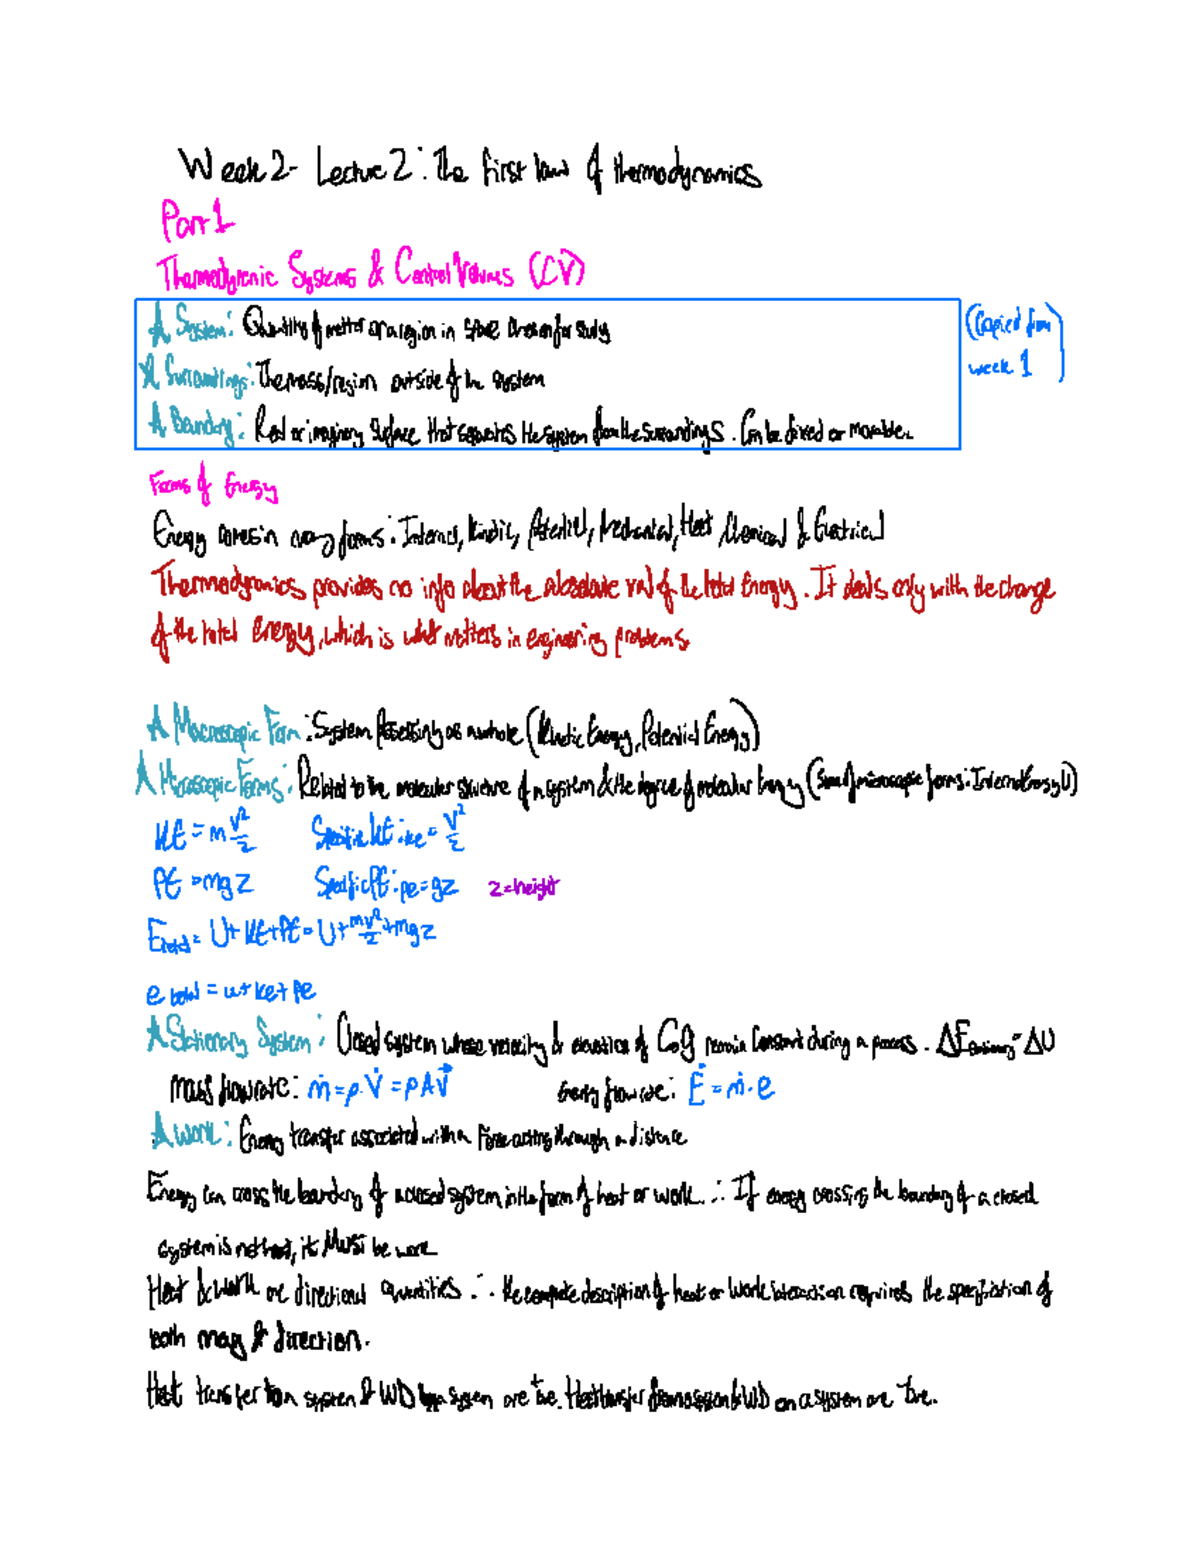 Week 2- Lecture 2: The First law of thermodynamics
Part 1
Thermodynamic Systems & Control Volumes (CV)
A System: Quantity of matter or a region in space chosen for study
(Copied from
A Surroundings: The mass/region outside of the system
week 1)
A Boundary: Real or imaginary surface that separates the system from the surroundings. Can be fixed or movable.
Forms of Energy
Energy comes in many forms: Internal, Kinetic, Potential, Mechanical, Heat, Chemical & Electrical
Thermodynamics provides no info about the absolute val of the total Energy. It deals only with the change
of the total energy, which is what matters in engineering problems
A Macroscopic Form: System Possessing as a whole (Kinetic Energy, Potential Energy)
A Microscopic Forms: Related to the molecular structure of a system & the degree of molecular (Sum of microscopic forms: Internal Energy U)
KE = m V²/2 Specific KE: ke = V²/2
PE = mgz Specific PE: pe = gz z = height
E total = U + KE + PE = U + mv²/2 + mgz
e total = u + ke + pe
A Stationary System: Closed system whose velocity & elevation of CoG remain constant during a process. ΔE stationary = ΔU
mass flow rate: ṁ = ρ·V̇ = ρAV⃗ Energy flow rate: Ė = ṁ·e
A work: Energy transfer associated with a Force acting through a distance
Energy can cross the boundary of a closed system in the form of heat or work. ∴ If energy crossing the boundary of a closed
system is not heat, it MUST be work
Heat & work are directional quantities. ∴ the complete description of heat or work interaction requires the specification of
both mag & direction.
Heat transfer to a system & WD by a system are +ve. Heat transfer from a system & WD on a system are -ve.